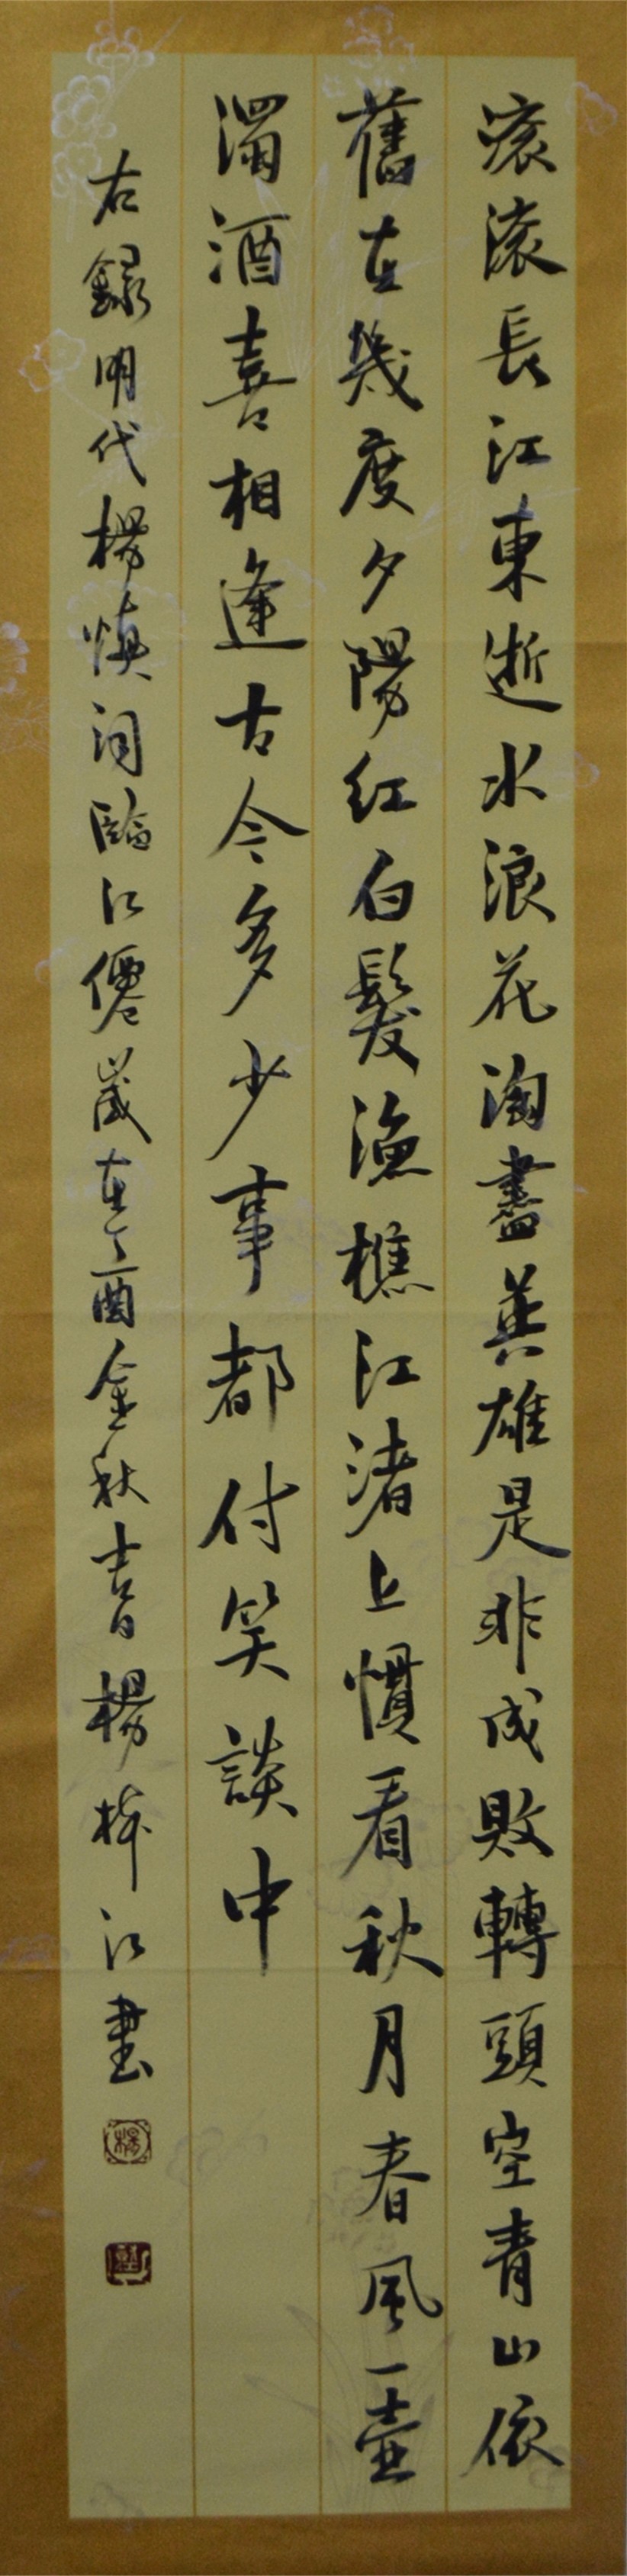 滚滚長江東逝水浪花淘盡英雄是非成敗轉頭空青山依
舊在幾度夕陽紅白髮漁樵江渚上慣看秋月春風一壺
濁酒喜相逢古今多少事都付笑談中
右録明代楊慎词臨江僊嵗在丁酉金秋吉日楊林江書
楊